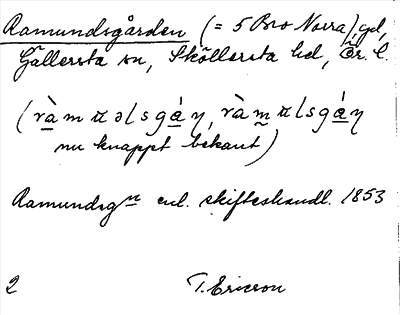 Ramundsgården (= 5 Bro Norra), gd,
Gällersta sn, Sköllersta hd, Ör. l.
(ràm꭛əlsgá̱ŋ, ràm̱꭛lsgá̱ŋ
nu knappt bekant)
Ramundsgⁿ enl. skifteshandl. 1853
2 T. Ericson